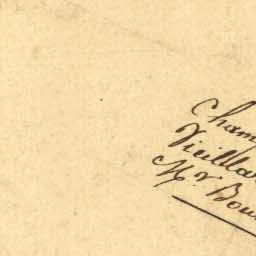 Cham
Vieilla
Mr. Bou